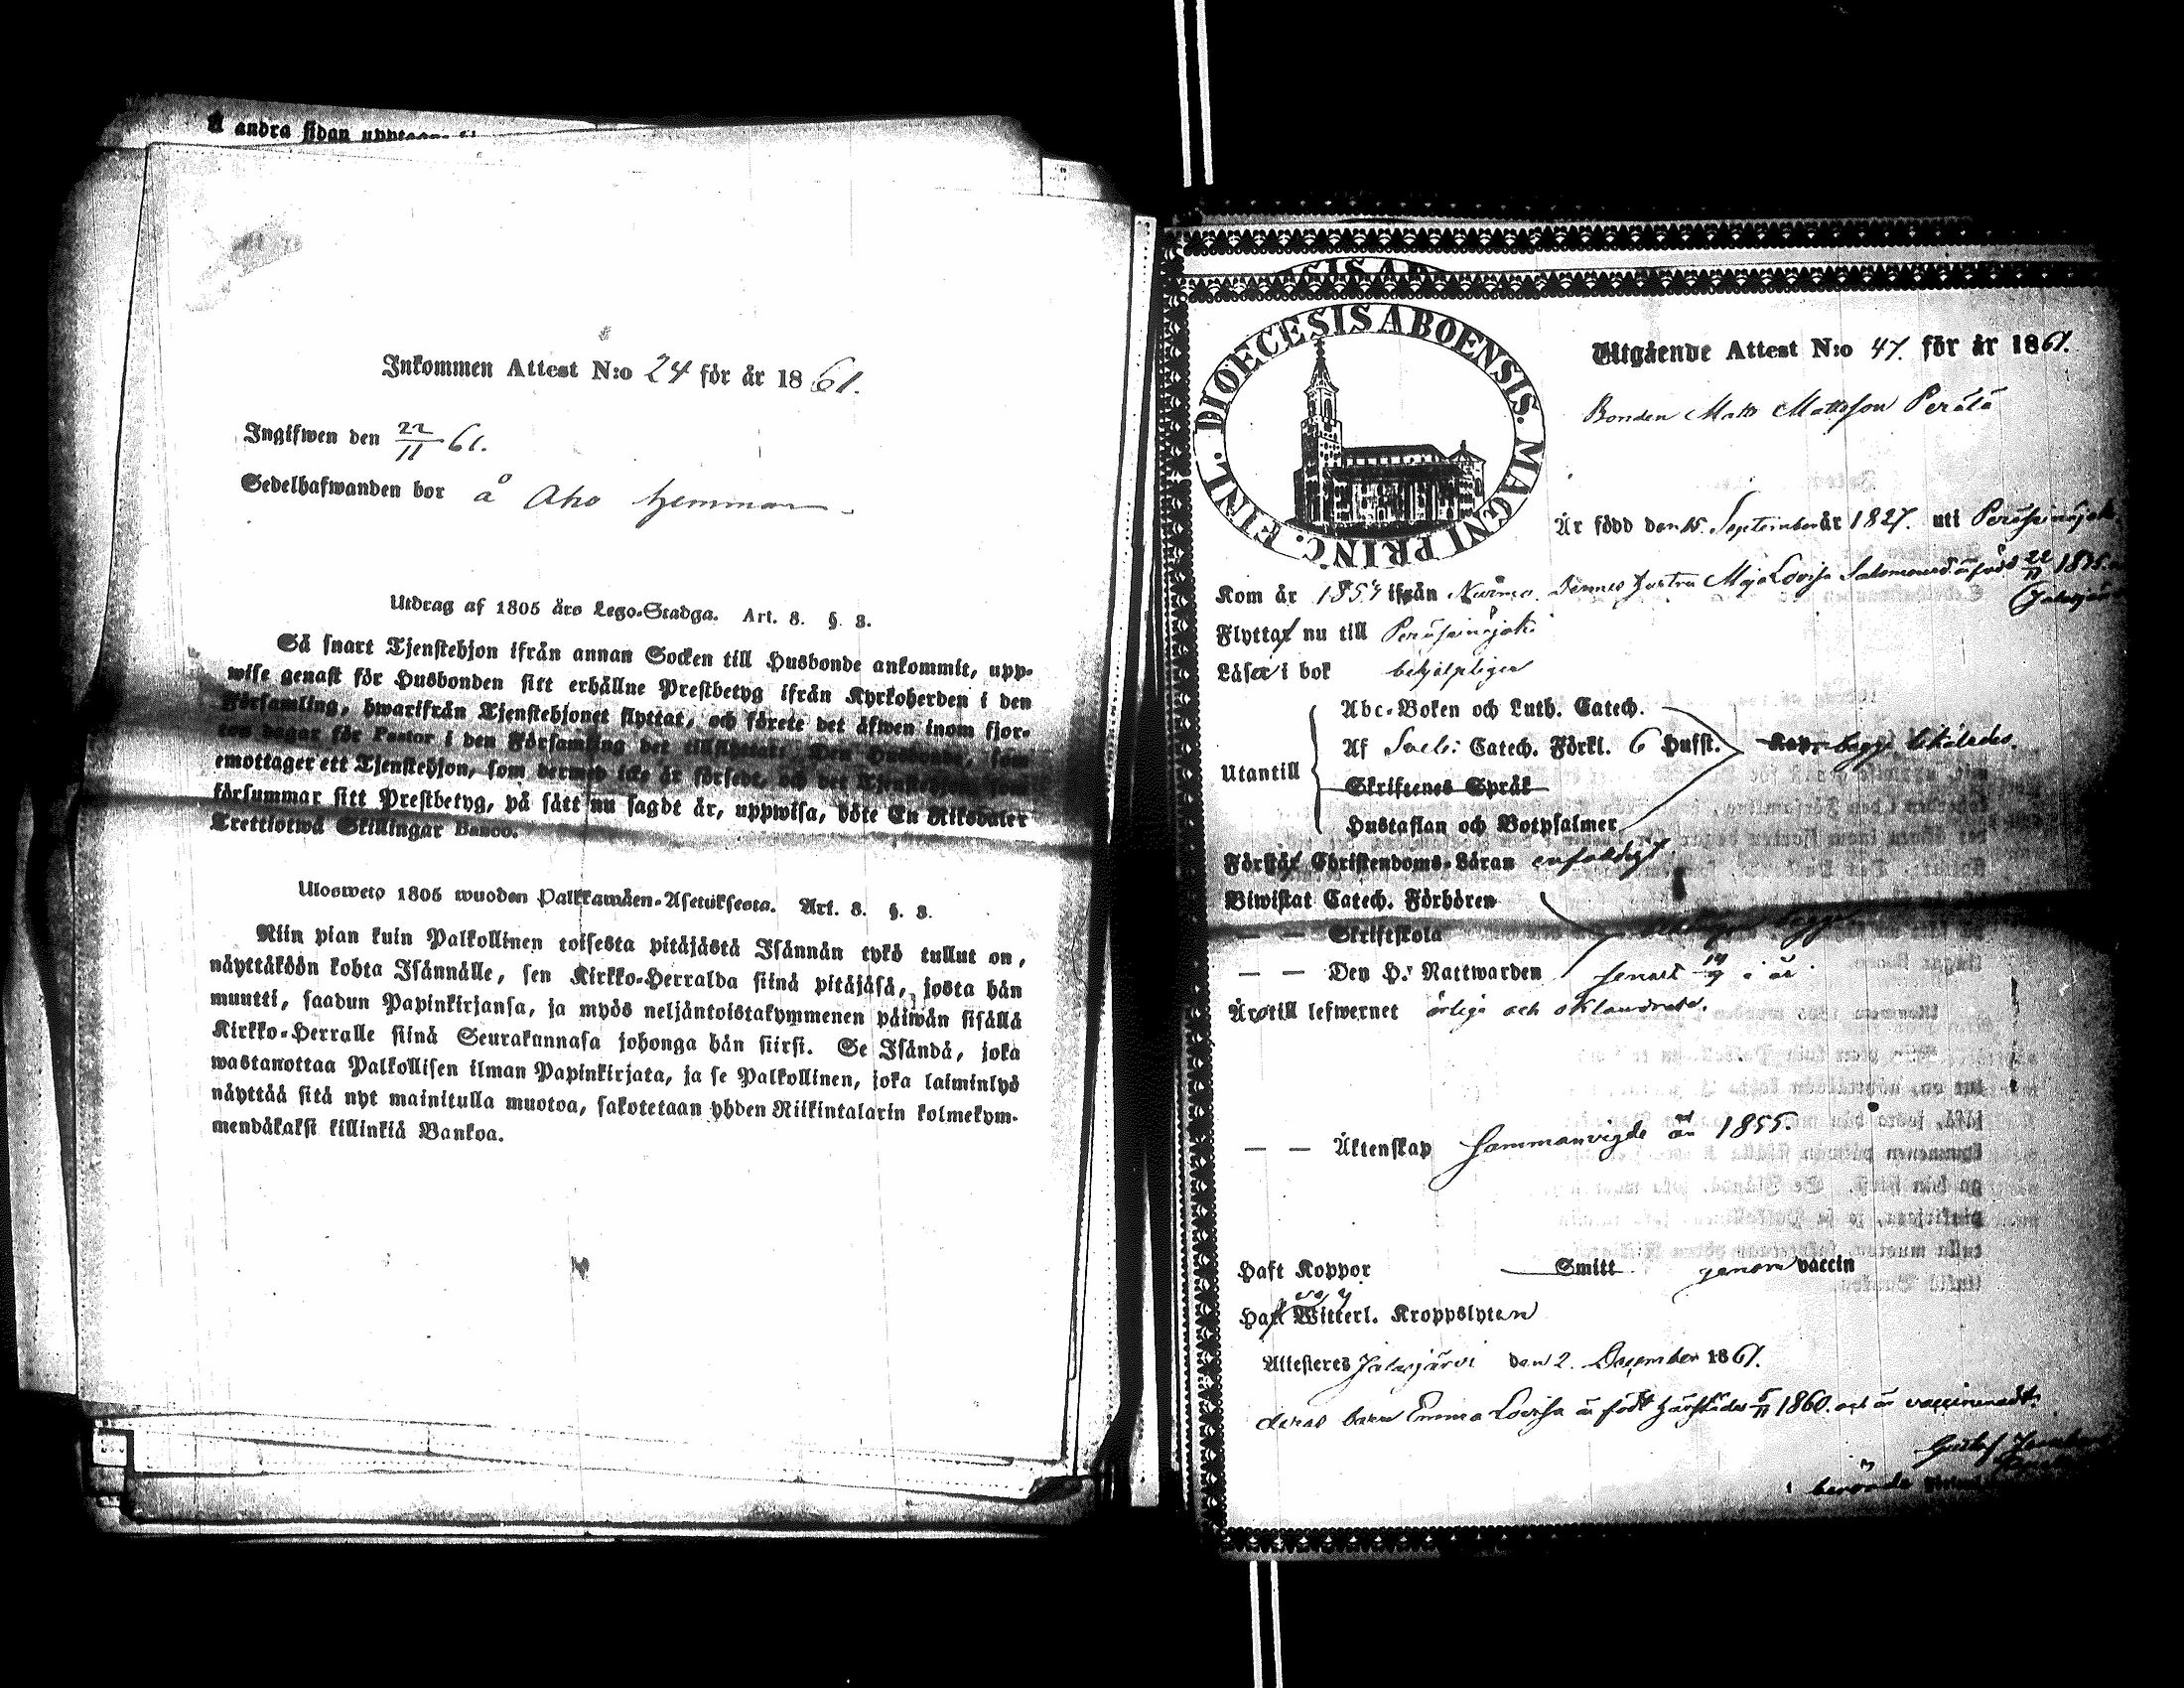 Å andra sidan
Inkommen Attest N:o 24 för år 1861.
Ingifwen den 22/11 61.
Sedelhafwanden bor å Aho hemman.
Utdrag af 1805 års Lego-Stadga. Art. 8. §. 3.
Så snart Tjenstehjon ifrån annan Socken till Husbonde ankommit, upp-
wise genast för Husbonden sitt erhållne Prestbetyg ifrån Kyrkoherden i den
Församling, hwarifrån Tjenstehjonet flyttat, och förete det äfwen inom fjor-
ton dagar för Pastor i den Församling det tillflyttat. Den Husbonde, som
emottager ett Tjenstehjon, som dermed icke är försedt, och det Tjenstehjon, som
försummar sitt Prestbetyg, på sätt nu sagdt är, uppwisa, böte En Riksdaler
Trettiotwå Skillingar Banco.
Ulosweto 1805 wuoden Palkkawäen-Asetuksesta. Art. 8. §. 3.
Niin pian kuin Palkollinen toisesta pitäjästä Isännän tykö tullut on,
näyttäköön kohta Isännälle, sen Kirkko-Herralda siinä pitäjäsä, josta hän
muutti, saadun Papinkirjansa, ja myös neljäntoistakymmenen päiwän sisällä
Kirkko-Herralle siinä Seurakunnasa johonga hän siirsi. Se Isändä, joka
wastanottaa Palkollisen ilman Papinkirjata, ja se Palkollinen, joka laiminlyö
näyttää sitä nyt mainitulla muotoa, sakotetaan yhden Riikintalarin kolmekym-
mendäkaksi killinkiä Bankoa.
DIOECESIS ABOENSIS. MAGNI PRINC. FINL.
Utgående Attest N:o 47. för år 1861.
Bonden Matts Mattsson Perälä
Är född den 15. September år 1827. uti Peräseinäjoki
Kom år 1854 ifrån Nurmo. Dennes hustru Maja Lovisa Salomonsd. är född 22/11 1835. i
Jalasjärvi
Flyttat nu till Peräseinäjoki
Läser i bok behjelpligen
Abc-Boken och Luth. Catech.
Utantill Af Sveb: Catech. Förkl. 6 Hufst. begge likaledes.
Skriftenes Språk
Hustaflan och Botpsalmer
Förstår Christendoms-Läran enfaldigt.
Biwistat Catech. Förhören
— — Skriftskola begge
— — Den H. Nattwarden senast 14/9 i år.
Äro till lefwernet ärliga och oklandrade.
— — Äktenskap Sammanvigde år 1855.
Haft Koppor Smitt genom vaccin
Haft Witterl. Kroppslyten
Attesteres Jalasjärvi den 2. December 1861.
deras barn Emma Lovisa är född härstädes 5/11 1860. och är vaccineradt.
Gustaf